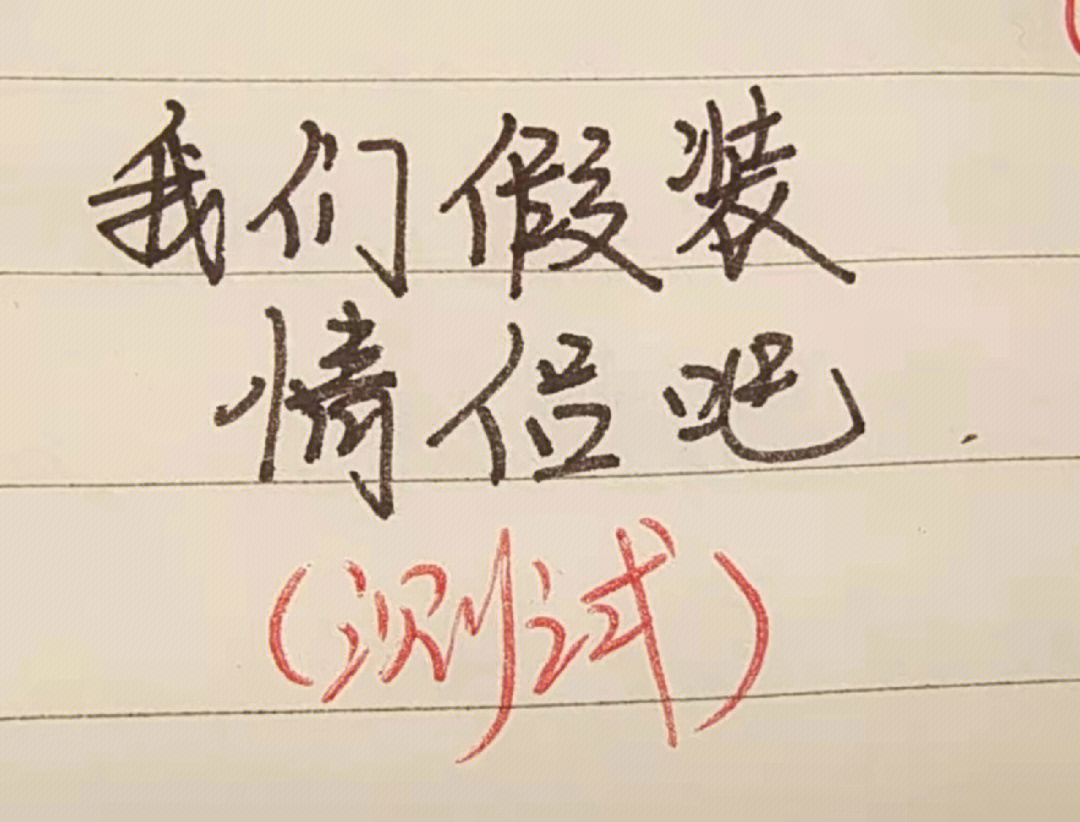 我们假装
情侣吧
(测试)